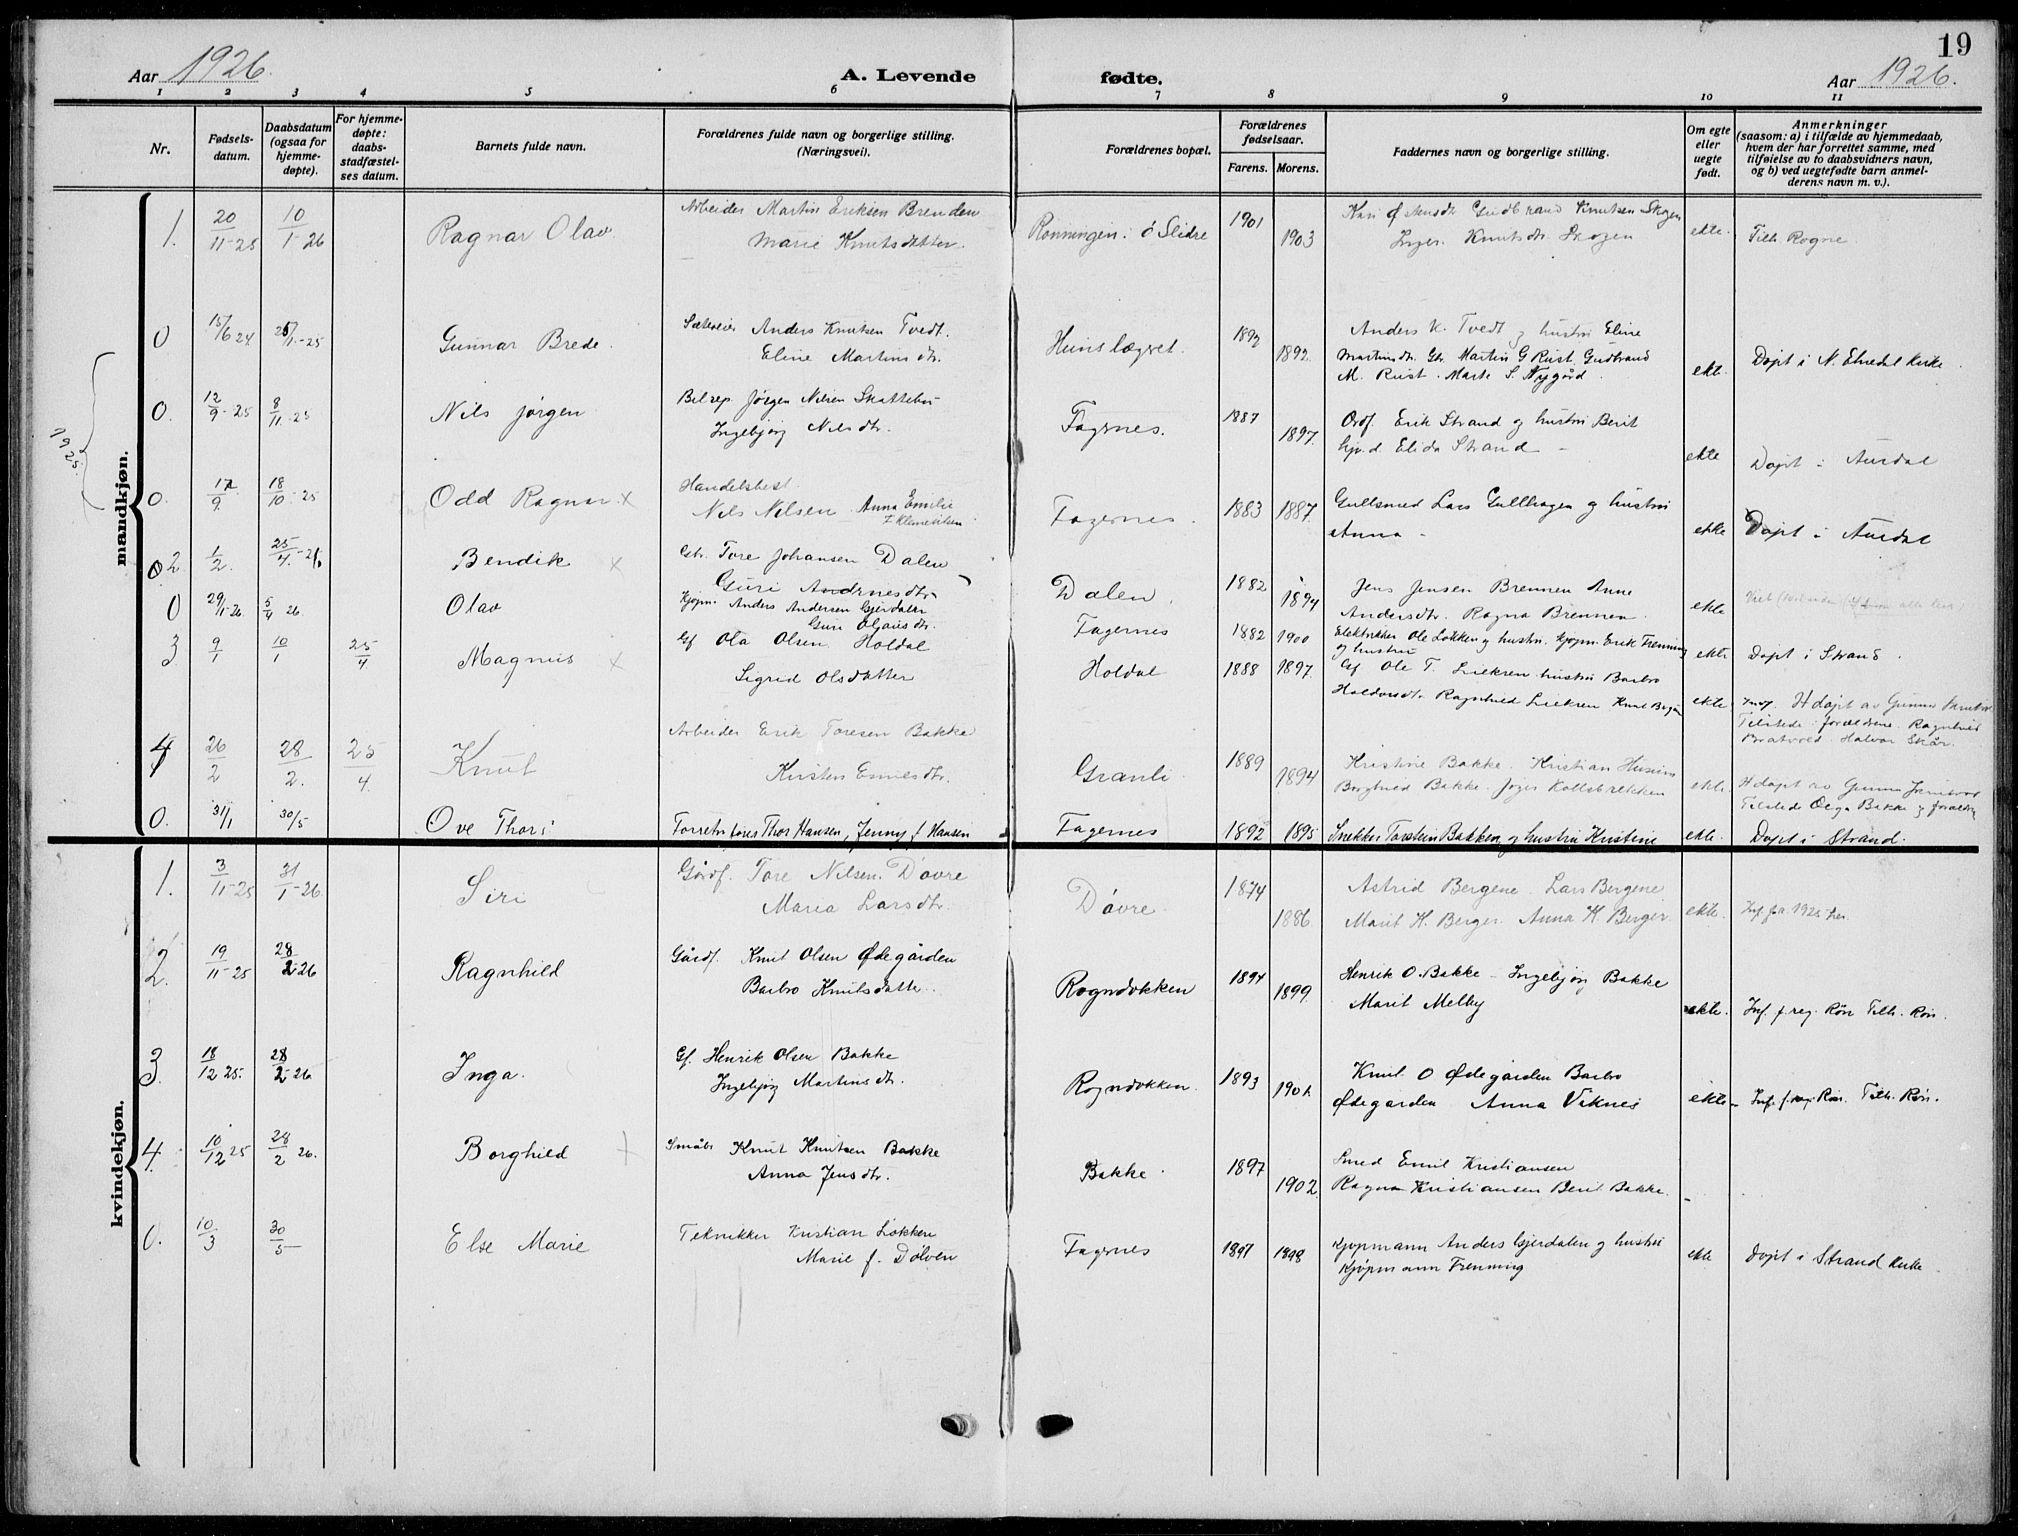 19
Aar 1926. A. Levende fødte. Aar 1926.
1 2 3 4 5 6 7 8 9 10 11
Nr. Fødsels-datum. Daabsdatum (ogsaa for hjemme-døpte). For hjemme-døpte: daabs-stadfæstel-ses datum. Barnets fulde navn. Forældrenes fulde navn og borgerlige stilling. (Næringsvei). Forældrenes bopæl. Forældrenes fødselsaar. Farens. Morens. Faddernes navn og borgerlige stilling. Om egte eller uegte født. Anmerkninger (saasom: a) i tilfælde av hjemmedaab, hvem der har forrettet samme, med tilføielse av to daabsvidners navn, og b) ved uegtefødte barn anmel-derens navn m. v.).
mandkjøn.
1925.
1. 20/11-25 10/1-26 Ragnar Olav. Arbeider Martin Eriksen Brenden 1901 Gudbrand Knutsen Skogen
Marie Knutsdatter. Rønningen i Ø Slidre 1903 Inger Knutsdtr. Skogen ekte. Tilh. Rogne.
0 15/6 24 25/1-25 Gunnar Brede. Anders Knutsen Tvedt. Anders K. Tvedt og hustru Eline
Eline Martinsdtr. 1892. Martinsdtr. Gbr. Martin G Rust Gudbrand
M. Rust. Marte S. Nygård. ekte. Døpt i N. Etnedal kirke
0. 12/9-25 8/11-25 Nils Jørgen Jørgen Nilsen Skattebu Fagernes. 1887 Ordf. Erik Strand og hustru Berit
Ingebjørg Nilsdtr. 1897. Elida Strand - ekte Døpt i Aurdal
0. 17/9 18/10-25 Odd Ragnar x Handelsbest.
Nils Nilsen Anna Emilie Fagernes. 1883 1887. Gullsmed Lars Gullhagen og hustru
f. Klemetsen Anna - ekte Døpt i Aurdal
02 1/2. 25/4-26 Bendik x Gbr. Tore Johansen Dalen
Guri Andersdtr. Dalen. 1882 1894 Jens Jensen Brennen Anne
Andersdtr. Ragna Brennen. ekte
0 29/1-26 5/4 26 Olav Kjøpm. Anders Andersen Gjerdalen
Guri Olausdtr. Fagernes 1882 1900 Elektriker Ole Løkken og hustru. Kjøpm. Erik Frenning
og hustru ekte Døpt i Strand.
3 9/1 10/1 25/4 Magnus x Gf Ola Olsen Holdal
Sigrid Olsdatter Holdal 1888 1897. Gf Ole T. Lieksen hustru Barbro
Haldorsdtr. Ragnhild Lieksen Knut ekte H døpt av Gunnar
Tilstede: forældrene. Ragnhild
Bratvold. Halvor Skår.
4 26/2 28/2. 25/4 Knut Arbeider Erik Toresen Bakke 1889 Kristine Bakke. Kristian
Kirsten Granli. 1894 Borghild Bakke. ekte. H døpt av Gunnar
Tilstede Olga Bakke og forældre
0. 31/1 30/5 Ove Thor Thor Hansen, Jenny f. Hansen Fagernes 1892 1895 Snekker Torstein Bakken og hustru Kristine ekte. Døpt i Strand.
kvindekjøn.
1. 3/11-25 31/1-26 Siri Gårdf. Tore Nilsen. Døvre 1874 Astrid Bergene. Lars Bergene
Maria Larsdtr. Døvre. 1886 Marit H. Berger. Anna H. Berger. ekte.
2. 19/11-25 28/2-26 Ragnhild Gårdf. Knut Olsen Ødegården 1894 Henrik O. Bakke - Ingebjørg Bakke
Barbro Knutsdatter. Rogndokken 1899 Marit Melby ekte. Inf. f. reg. Røn Tilh. Røn.
3. 18/12 25. 28/2-26 Inga. Gf. Henrik Olsen Bakke 1893 Knut O Ødegården Barbro
Ingebjørg Martinsdtr. Rogndokken. 1901. Ødegården Anna Viknes ekte - Inf. f. reg. Røn. Tilh. Røn.
4. 10/12 25 28/2 26. Borghild Småbr. Knut Knutsen Bakke 1897 Smed Emil Kristiansen
Anna Jensdtr. Bakke. 1902. Ragna Kristiansen Berit Bakke. -
0. 10/3 30/5 Else Marie Tekniker Kristian Løkken Fagernes 1897 1898 Kjøpmann Anders Gjerdalen og hustru ekte Døpt i Strand kirke
Marie f. Dølven Kjøpmann Frenning